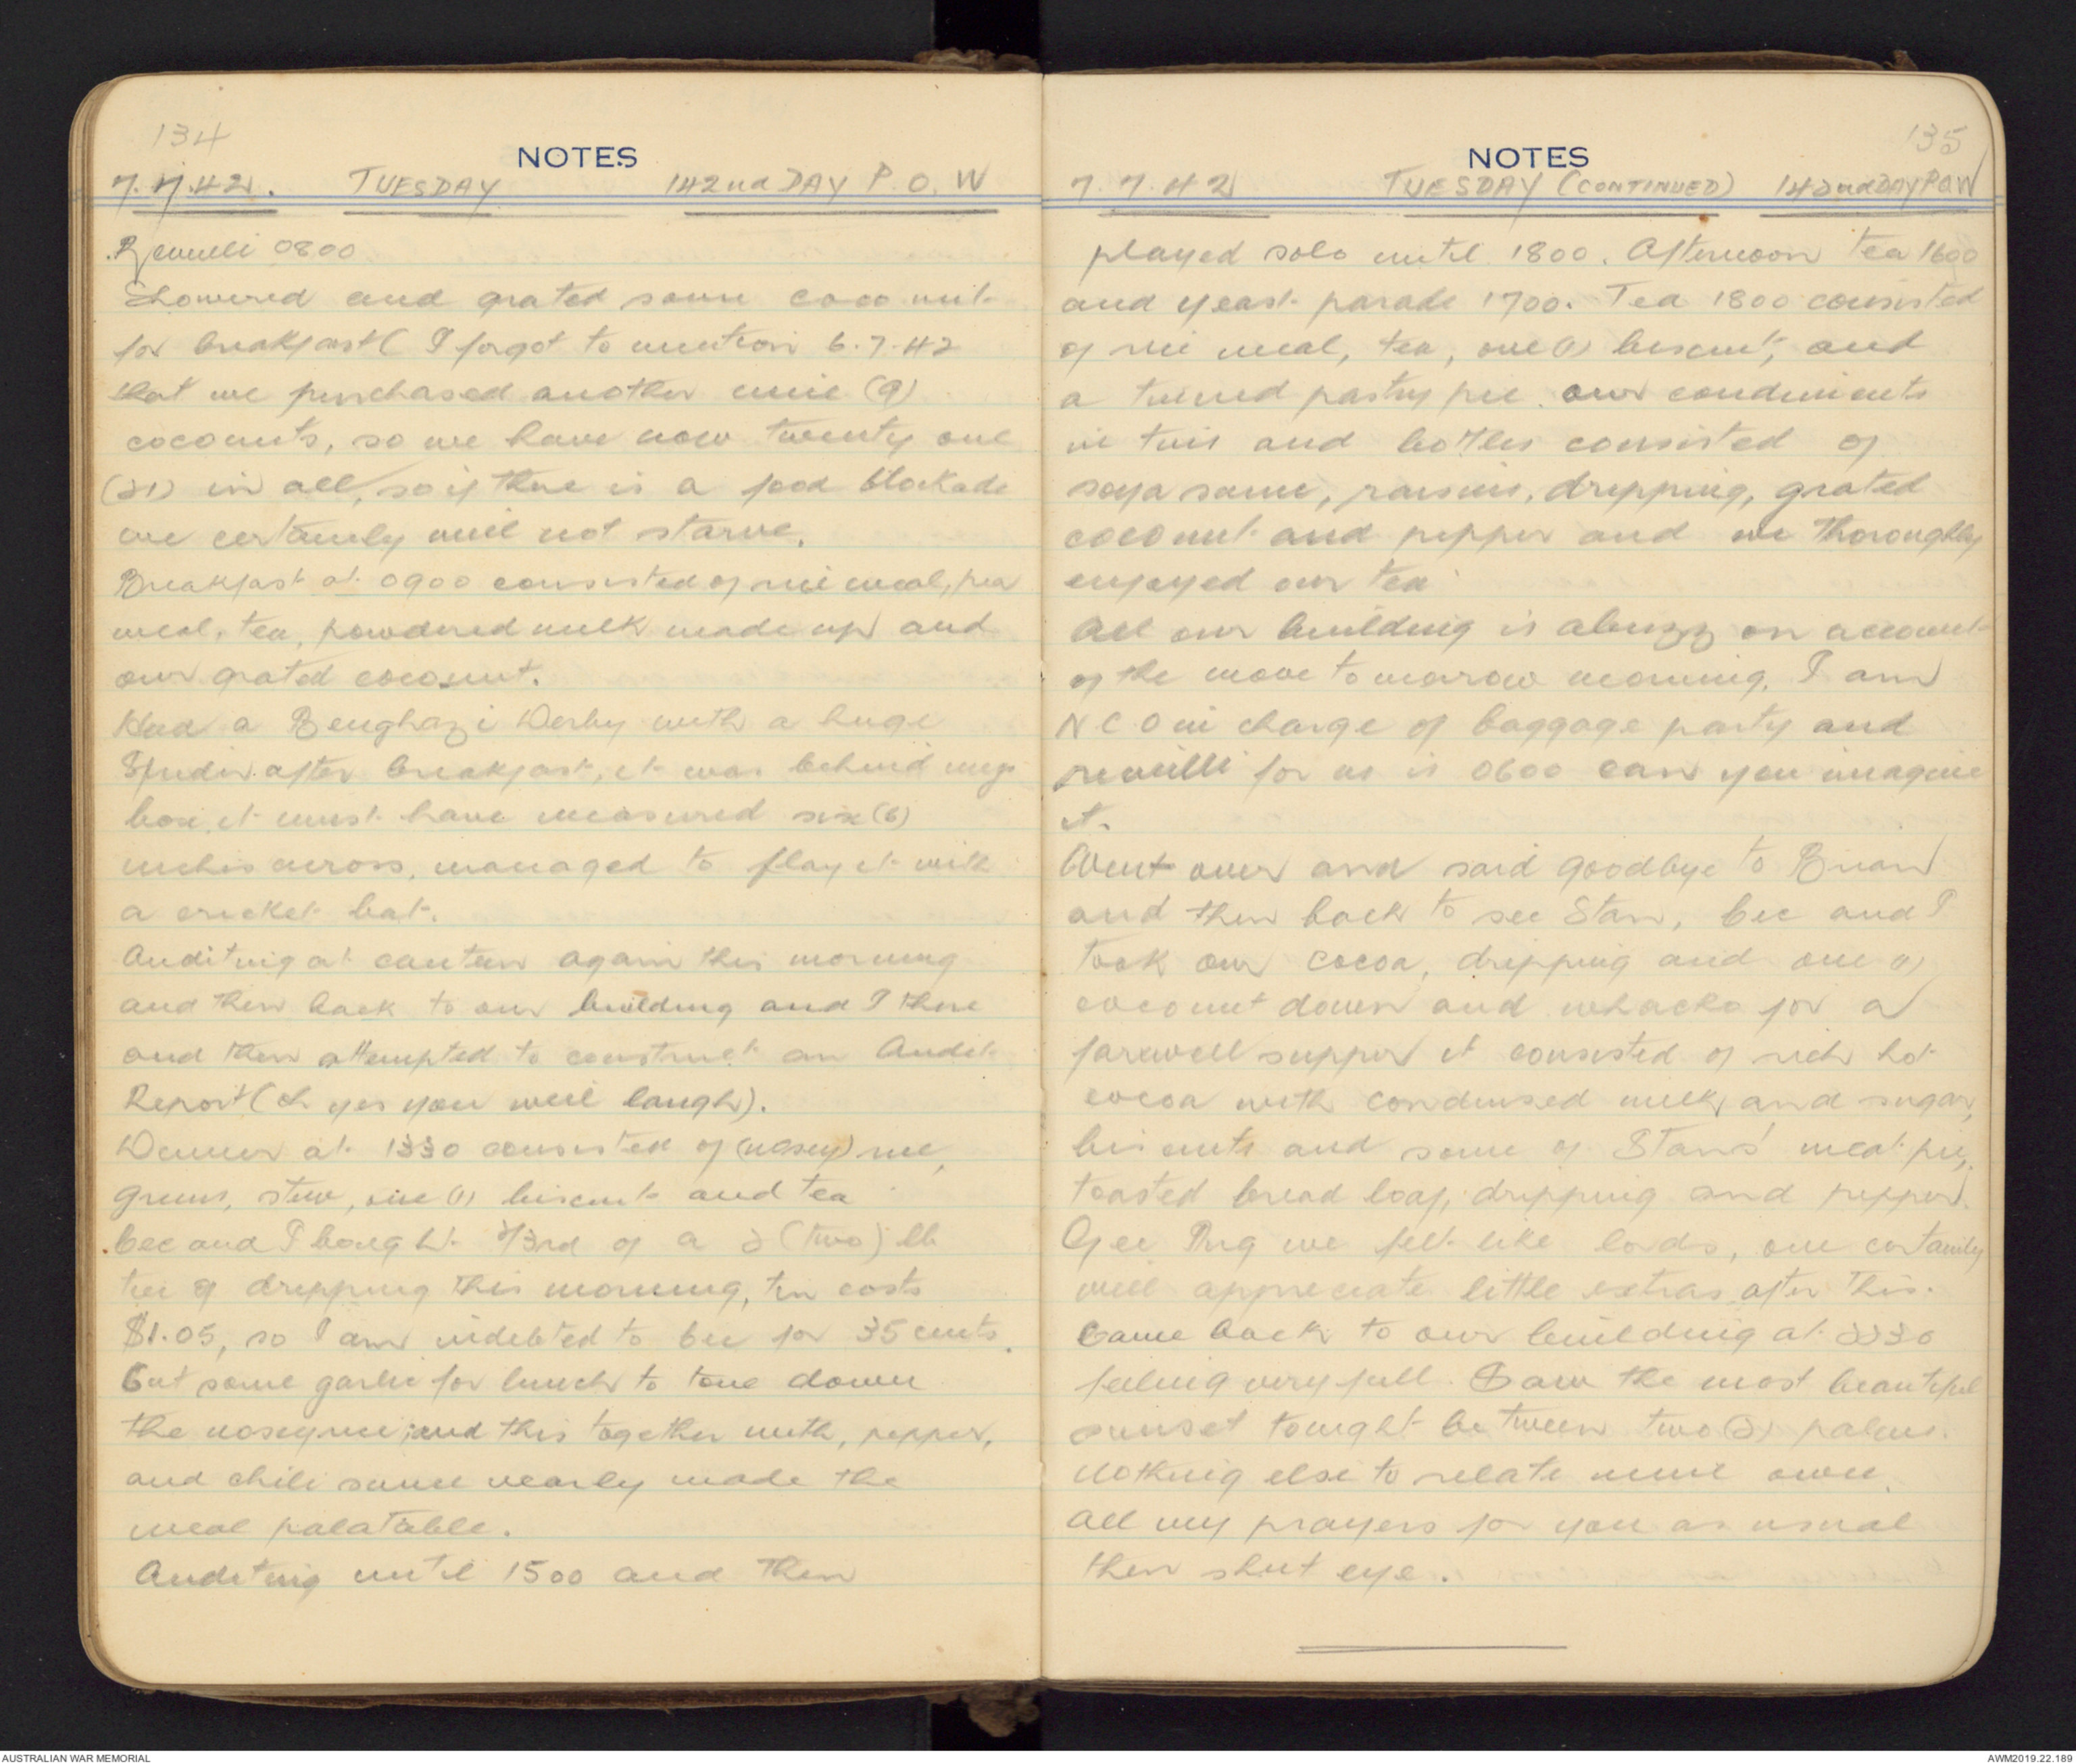 134
NOTES
7.7.42. TUESDAY 142nd DAY P.O.W
Reveille 0800
Showered and grated some coco nut
for breakfast ( I forgot to mention 6.7.42
that we purchased another nine (9)
coconuts, so we have now twenty one
(21) in all, so if there is a food blockade
we certainly will not starve.
Breakfast at 0900 consisted of rice meal, pea
meal, tea, powdered milk made up and
our grated coconut.
Had a Benghazi Derby with a huge
Spider after breakfast, it was behind my
box, it must have measured six (6)
inches across, managed to flay it with
a cricket bat.
Auditing at canteen again this morning
and then back to our building and I there
and then attempted to construct an Audit
Report (oh yes you will laugh).
Dinner at 1330 consisted of (nosey) rice,
greens, stew, one (1) biscuit and tea
Cec and I bought 2/3rd of a 2 (two) lb
tin of dripping this morning, tin costs
$1.05, so I am indebted to Cec for 35 cents.
Cut some garlic for lunch to tone down
the nosey rice; and this together with, pepper,
and chili sauce nearly made the
meal palatable.
Auditing until 1500 and then
135
NOTES
7.7.42 TUESDAY (CONTINUED) 142nd DAY POW
played solo until 1800. Afternoon tea 1600
and yeast parade 1700. Tea 1800 consisted
of rice meal, tea, one (1) biscuit, and
a tinned pastry pie. our condiments
in tins and bottles consisted of
soya sauce, raisins, dripping, grated
coconut and pepper and we thoroughly
enjoyed our tea
All our building is abuzz on account
of the move tomorrow morning. I am
N C O in charge of baggage party and
reveille for us is 0600 can you imagine
it.
Went over and said goodbye to Brian
and then back to see Stan, Cec and I
took our cocoa, dripping and one (1)
coconut down and whacko for a
farewell supper it consisted of rich hot
cocoa with condensed milk and sugar,
biscuits and some of Stans' meat pie,
toasted bread loaf, dripping and pepper.
Gee Pug we felt like lords, one certainly
will appreciate little extras after this.
Came back to our building at 2230
feeling very full. Saw the most beautiful
sunset tonight between two (2) palms.
Nothing else to relate mine own.
All my prayers for you as usual
then shut eye.
AUSTRALIAN WAR MEMORIAL
AWM2019.22.189